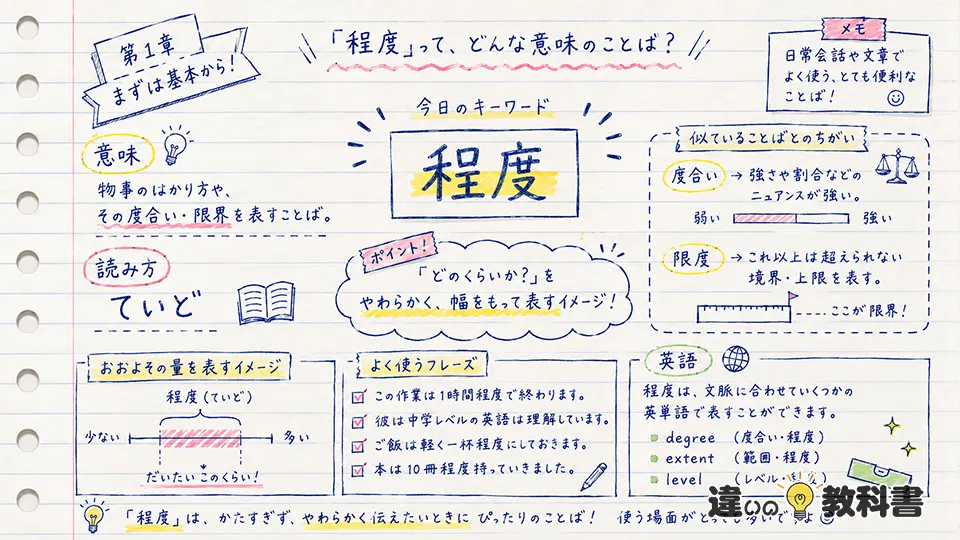 第1章
まずは基本から!
「程度」って、どんな意味のことば?
メモ
日常会話や文章で
よく使う、とても便利な
ことば!
今日のキーワード
程度
意味
物事のはかり方や、
その度合い・限界を表すことば。
読み方
ていど
ポイント!
「どのくらいか?」を
やわらかく、幅をもって表すイメージ!
似ていることばとのちがい
度合い → 強さや割合などの
ニュアンスが強い。
弱い 強い
限度 → これ以上は超えられない
境界・上限を表す。
ここが限界!
おおよその量を表すイメージ
程度(ていど)
少ない 多い
だいたいこのくらい!
よく使うフレーズ
この作業は1時間程度で終わります。
彼は中学レベルの英語は理解しています。
ご飯は軽く一杯程度にしておきます。
本は10冊程度持っていきました。
英語
程度は、文脈に合わせていくつかの
英単語で表すことができます。
degree (度合い・程度)
extent (範囲・程度)
level (レベル・
「程度」は、かたすぎず、やわらかく伝えたいときに ぴったりのことば! 使う場面が
違いの教科書